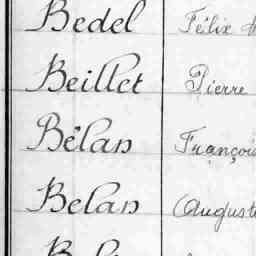 Bedel Félix
Beillet Pierre
Bélan François
Belan Auguste